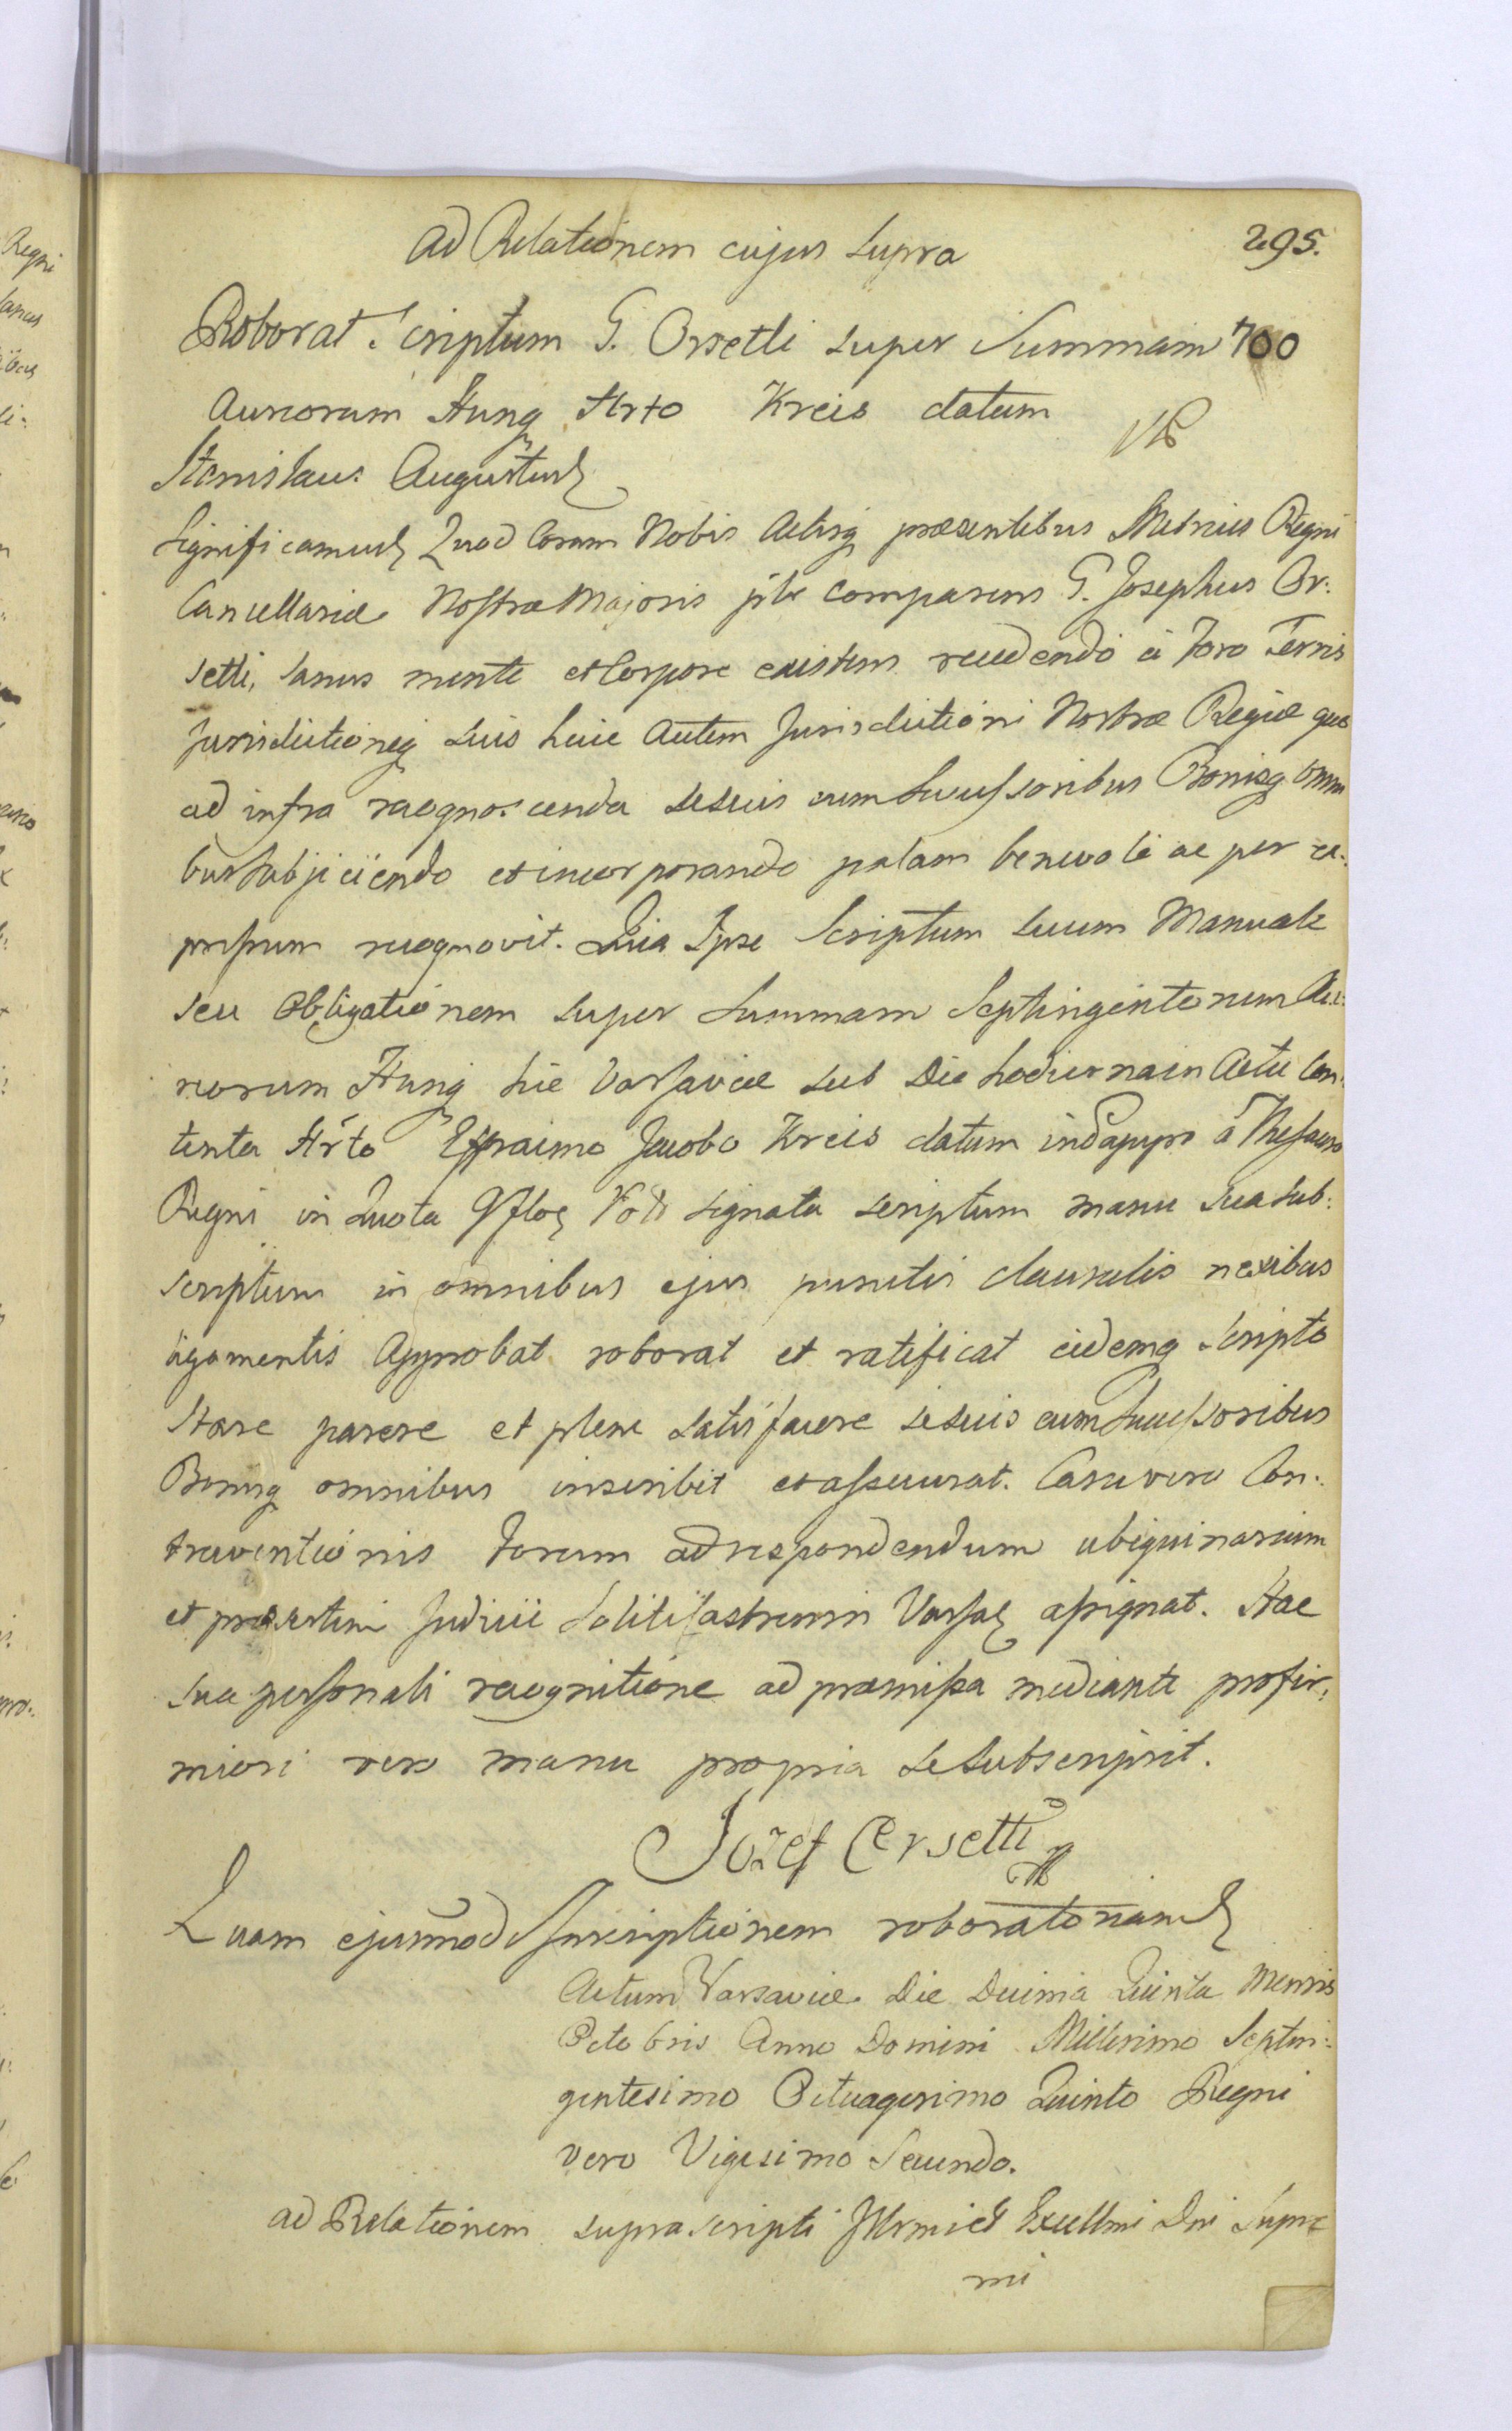 ad Relationem cujus supra
295.
Roborat Scriptum G. Orsetti super Summam 700
Aureorum Hung Arto Kreis datum
Stanislaus Augustus
Significamus Quod Coram Nobis Actisq praesentibus Metrices Regni
Cancellariae Nostrae Majoris pstr comparens G. Josephus Or:
setti, sanus mente et Corpore existens recedendo à Foro Terris
Jurisdictioneq suis huic Autem Jurisdictioni Nostrae Regiae quo
ad infra recognoscenda se suis cum Successoribus Bonisq omni
bus subjiciendo et incorporando palam benevole ac per ex:
pressum recognovit. Quia Ipse Scriptum suum Manuale
seu Obligationem super Summam Septingentorum Au:
reorum Hung hic Varsaviae sub Die hodierna in Actu Con:
tenta Arto Effraimo Jacobo Kreis datum in Papyro à Thesauro
Regni in Quota signata scriptum manu sua sub:
scriptum in omnibus ejus punctis clausulis nexibus
ligamentis Approbat roborat et ratificat eidemq Scripto
Stare parere et plene satisfacere se suis cum Successoribus
Bonisq omnibus inscribit et assecurat. Casu vero Con:
traventionis Forum ad respondendum ubiquinarium
et praesertim Judicii Solitii Castrensin Varsae assignat. Hac
sua personali recognitione ad praemissa mediante pro fir:
miori vero manu propria se subscripsit.
Jozef Orsetti
Quam ejusmodi Inscriptionem roboratoriam
Actum Varsaviae Die Decima Quinta Mensis
Octobris Anno Domini Millesimo Septin:
gentesimo Octuagesimo Quinto Regni
vero Vigesimo Secundo.
ad Relationem suprascripti Illrmi et Excellmi Dni Supre
mi